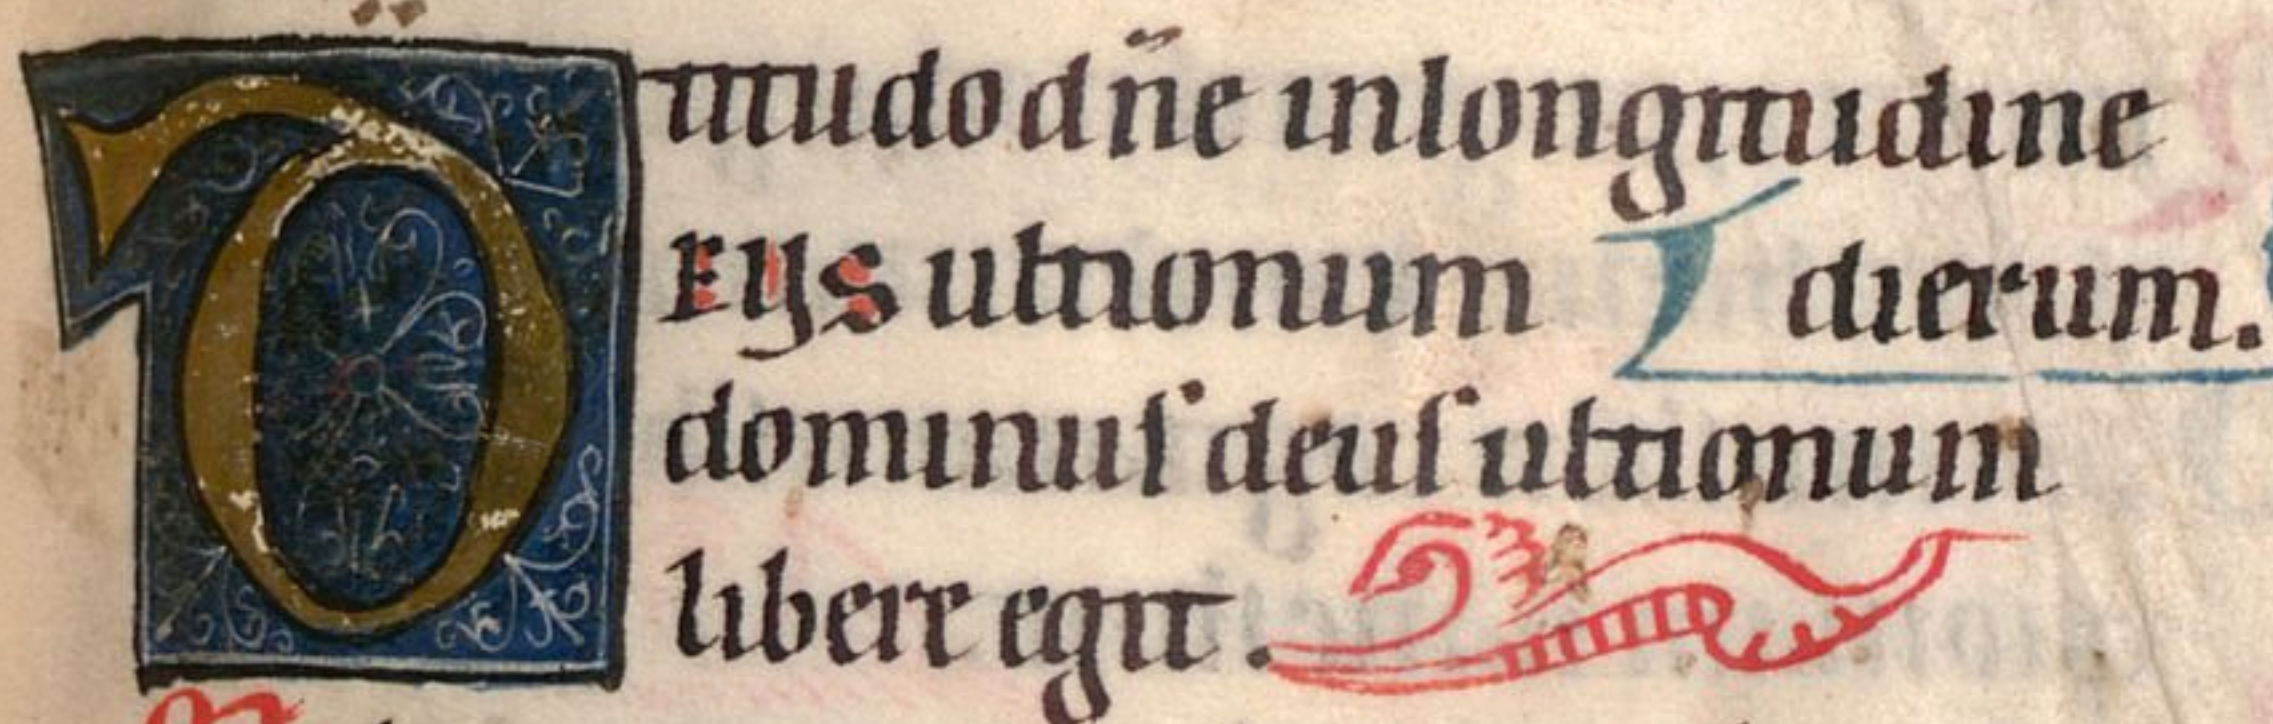 titudo dn̄e in longitudine
DEUS ultionum dierum.
dominus deus ultionum
libere egit.